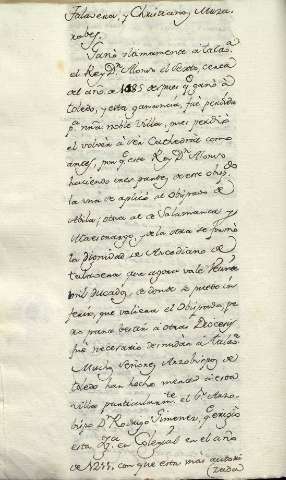 Talavera, y Christianos Muza-
rabes.
Ganó ultimamente à Talaª
el Rey Dn. Alonso el Sexto, cerca
del año de 1085 despues q̃ ganò à
Toledo, y esta ganancia, fue perdida
pª nrã noble Villa, pues perdiò
el volver à ser Cathedral como
antes, por q̃ este Rey Dn. Alonso
haciendo tres partes de este obisdo
la una se aplicó al Obispado de
Abila; otra al de Salamanca y
, y de la otra se formó
la Dignidad de Arcediano de
Talavera que agora vale
mil Ducados, de donde se puede in-
ferir, que valiera el Obispado, pe-
ro para hechar à otras Diocesis
fue necesario desnudar à Talaª
Muchos Señores Arzobispos de
Toledo han hecho merced à esta
Villa particularmte el Sr Arzo-
bispo Dn Rodrigo Ximenez, q̃ erigio
esta Yglª en Colegial en el año
de 1211, con que esta mas autori
zada